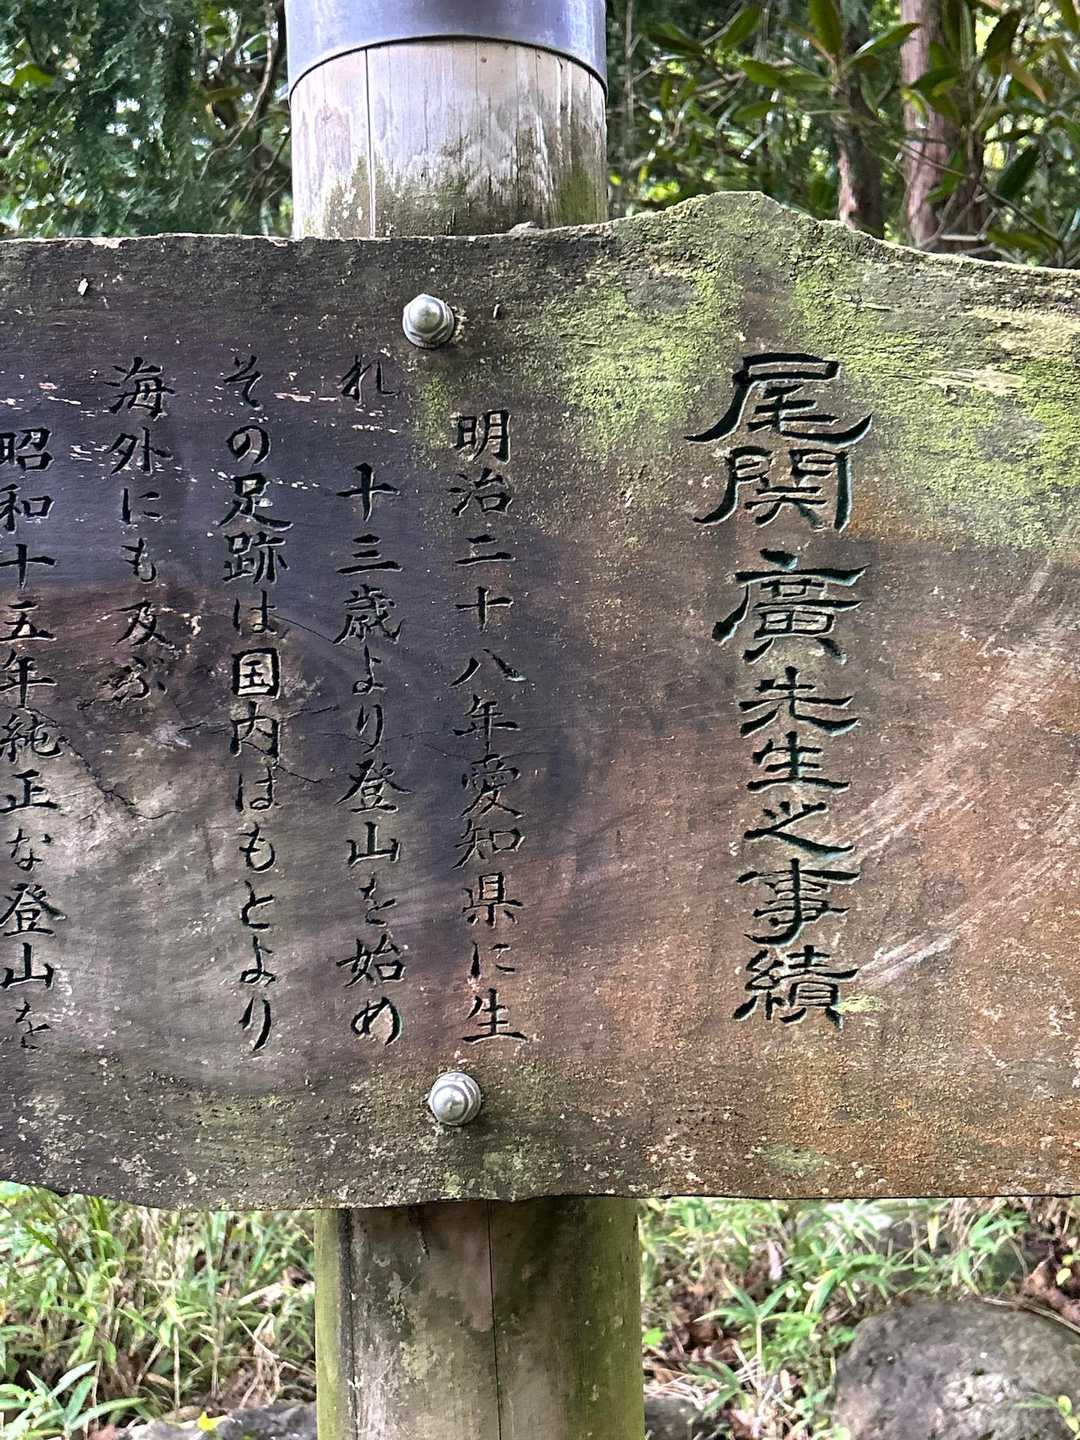 尾関廣先生之事績
明治二十八年愛知県に生
れ 十三歳より登山を始め
その足跡は国内はもとより
海外にも及ぶ
昭和十五年純正な登山を